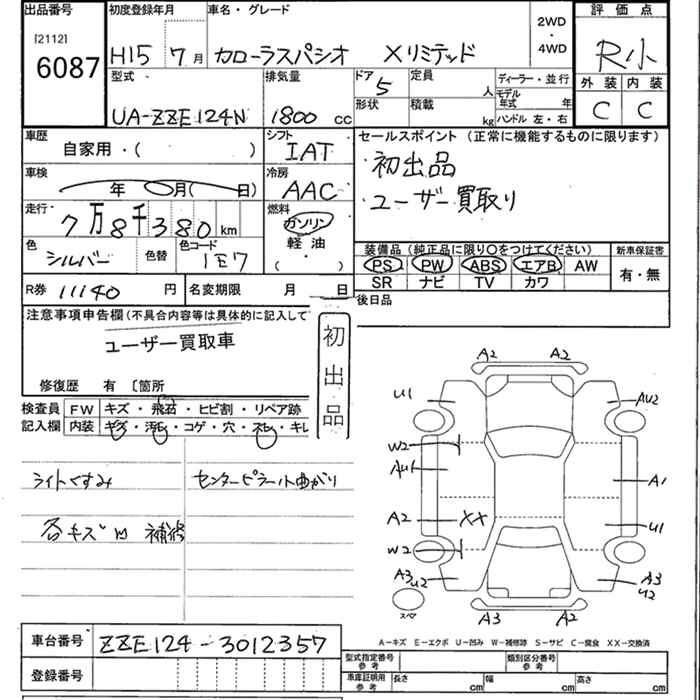 出品番号
[2112]
6087
初度登録年月
H15 7月
車名・グレード
カローラスパシオ Xリミテッド
2WD
・
4WD
評価点
R小
外装 内装
C C
型式
UA-ZZE124N
排気量
1800 cc
ドア 5
形状
定員 人
積載 kg
ディーラー・並行
モデル年式 年
ハンドル 左・右
車歴
自家用・( )
シフト
IAT
セールスポイント (正常に機能するものに限ります)
・初出品
・ユーザー買取り
車検
年 月( 日)
冷房
AAC
走行
7万8千380km
燃料
ガソリン
軽油
( ・ )
色
シルバー
色替
色コード
1E7
装備品(純正品に限り〇をつけてください)
PS PW ABS エアB AW
SR ナビ TV カワ
新車保証書
有・無
R券 11140 円
名変期限 月 日
後日品
注意事項申告欄(不具合内容等は具体的に記入して
ユーザー買取車
初出品
修復歴 有 〔箇所
検査員
記入欄
FW キズ・飛石・ヒビ割・リペア跡
内装 キズ・汚レ・コゲ・穴・スレ・キレ
ライトくすみ
センターピラー
曲がり
各キズ凹 補修
A2 A2
U1 AU2
W2
AU1 A1
A2 XX U1
W2
A3 U2 A3 U2
スペア
A3 A2
A-キズ E-エクボ U-凹み W-補修跡 S-サビ C-腐食 XX-交換済
車台番号 ZZE124-3012357
登録番号
型式指定番号
参考
類別区分番号
参考
車庫証明用
参考
長さ cm 幅 cm 高さ cm